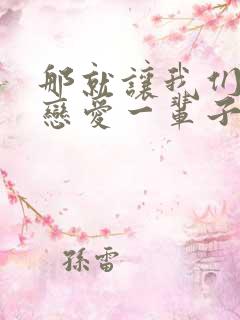 那就讓我们
戀愛一輩子
孫雷